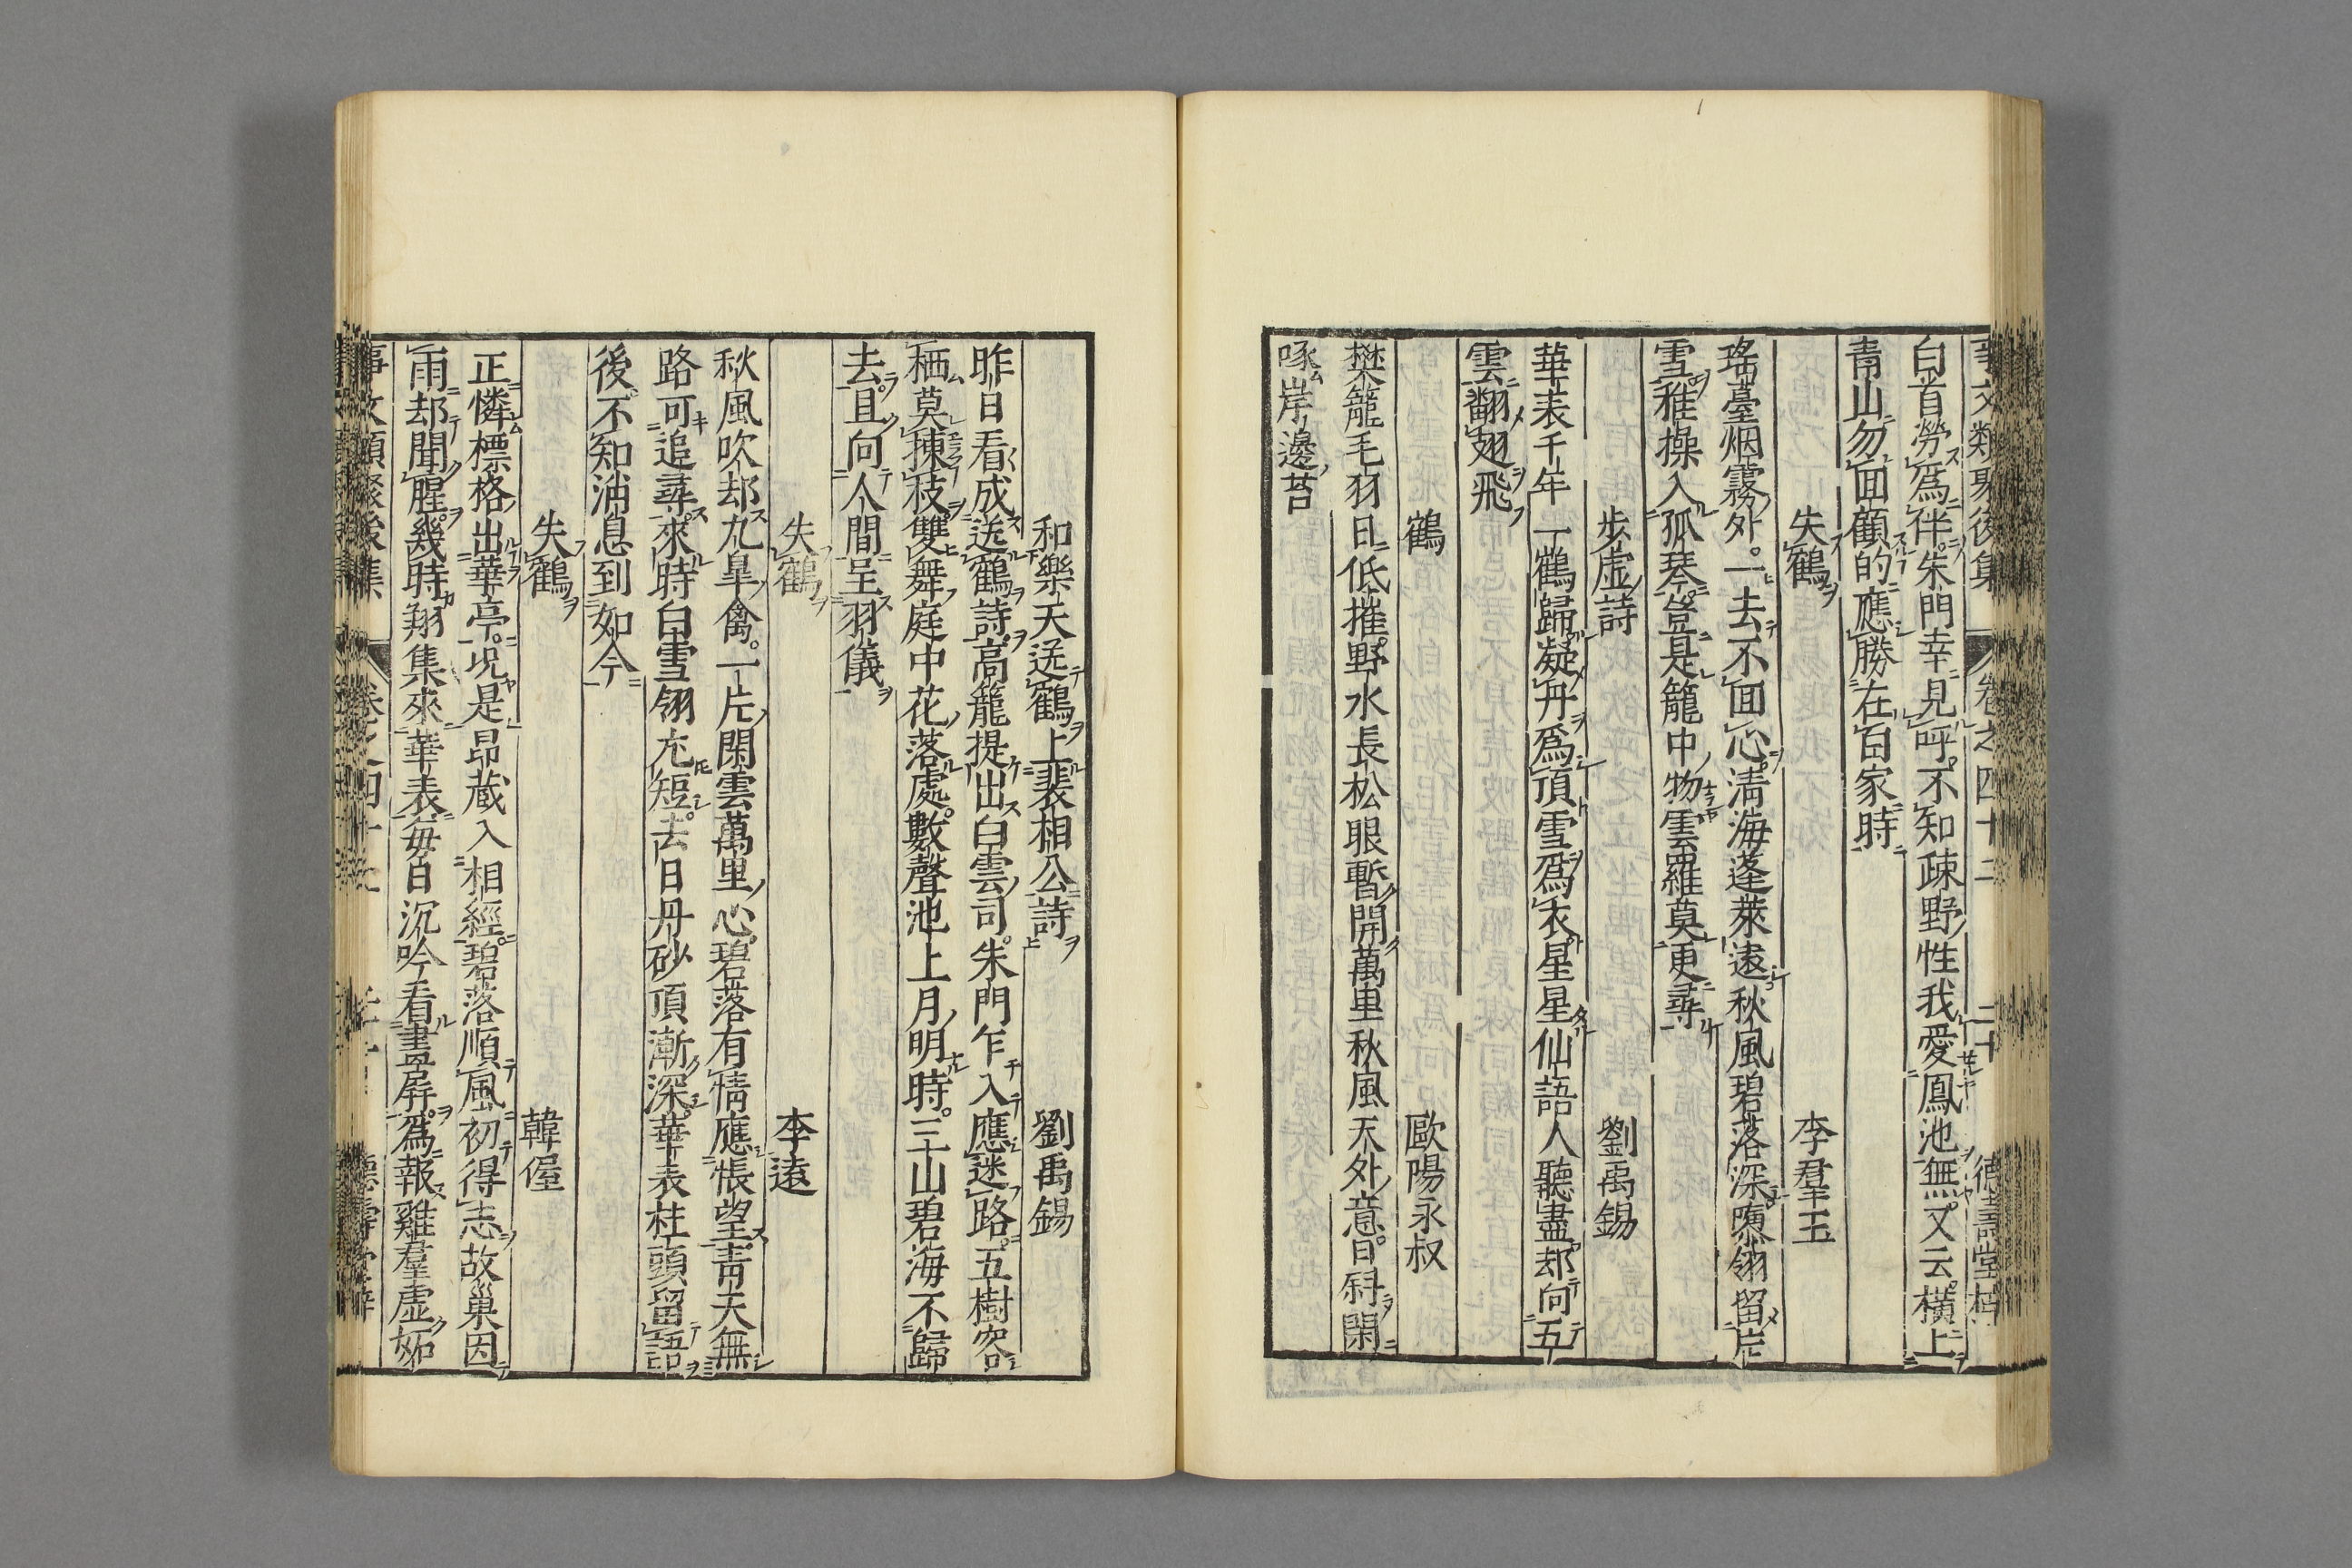 事文類聚後集 卷之四十二 二十 德壽堂梓
白首勞爲伴朱門幸見呼不知疎野性我愛鳳池無又云橫上
靑山勿囬顧的應勝在百家時
失鶴 李羣玉
瑤臺烟霧外一去不囬心淸海蓬萊遠秋風碧落深墮翎留片
雪稚操入孤琴豈是籠中物雲羅莫更尋
步虛詩 劉禹錫
華表千年一鶴歸凝丹爲頂雪爲衣星星仙語人聽盡却向五
雲翻翅飛
鶴 歐陽永叔
樊籠毛羽日低摧野水長松眼暫開萬里秋風天外意日斜閑
啄岸邊苔
和樂天送鶴上裴相公詩 劉禹錫
昨日看成送鶴詩高籠提出白雲司朱門乍入應迷路五樹容
栖莫揀枝雙舞庭中花落處數聲池上月明時三山碧海不歸
去且向人間呈羽儀
失鶴 李遠
秋風吹却九皐禽一片閑雲萬里心碧落有情應悵望靑天無
路可追尋來時白雪翎尤短去日丹砂頂漸深華表柱頭留語
後不知消息到如今
失鶴 韓偓
正憐標格出華亭况是昻藏入相經碧落順風初得志故巢因
雨却聞腥幾時翔集來華表每日沉吟看畫屏爲報雞羣虛妬